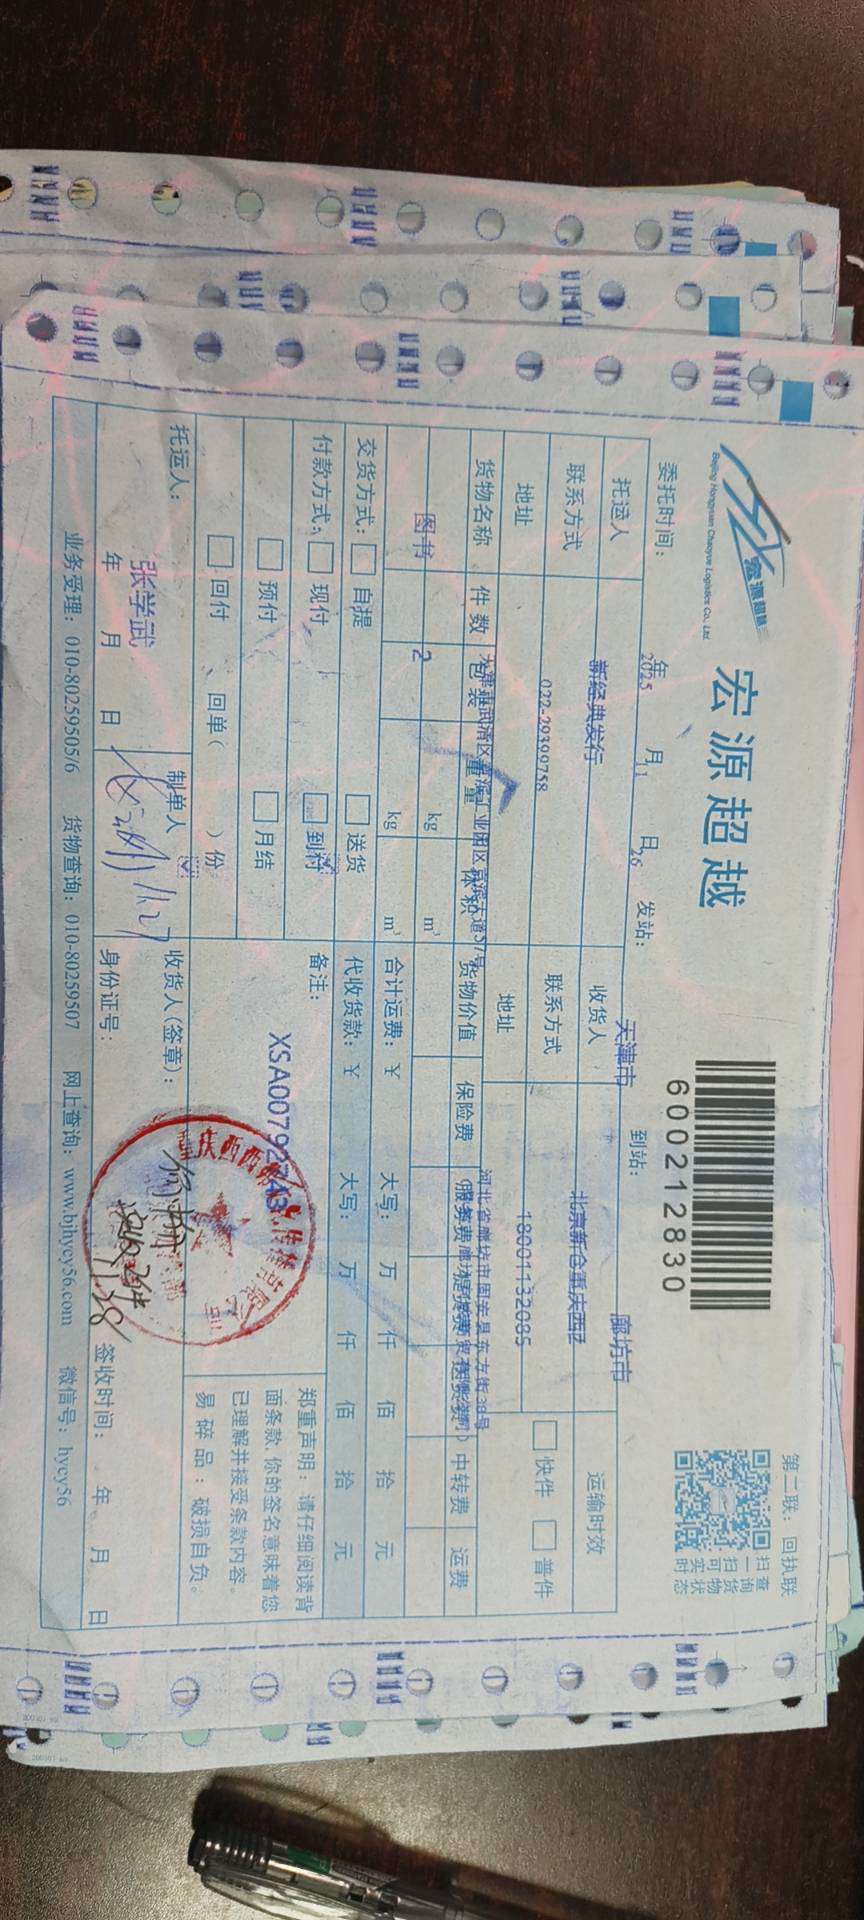 宏源超越
Beijing Hongyuan Chaoyue Logistics Co., Ltd.
宏源超越
600212830
第二联：回执联
扫一扫可实时
查询货物状态
委托时间： 2025 年 11 月 26 日 发站： 天津市 到站： 廊坊市
托运人 新经典发行 收货人 北京新仓重庆西 运输时效
联系方式 022-29399758 联系方式 18001132085 快件 普件
地址 地址 河北省廊坊市固安县东方街38号
货物名称 件数 包装 重量 体积 货物价值 保险费 服务费 中转费 运费
图书 2 kg m³
kg m³
交货方式： 自提 送货 合计运费：￥ 大写： 万 仟 佰 拾 元
付款方式： 现付 到付 代收货款：￥ 大写： 万 仟 佰 拾 元
预付 月结 备注：
回付 回单（ ）份 XSA00792743
郑重声明：请仔细阅读背
面条款，你的签名意味着您
已理解并接受条款内容。
易碎品：破损自负。
托运人： 张学武 制单人 收货人(签章)：
年 月 日 身份证号： 签收时间： 年 月 日
业务受理：010-80259505/6 货物查询：010-80259507 网上查询：www.bjhycy56.com 微信号：hycy56